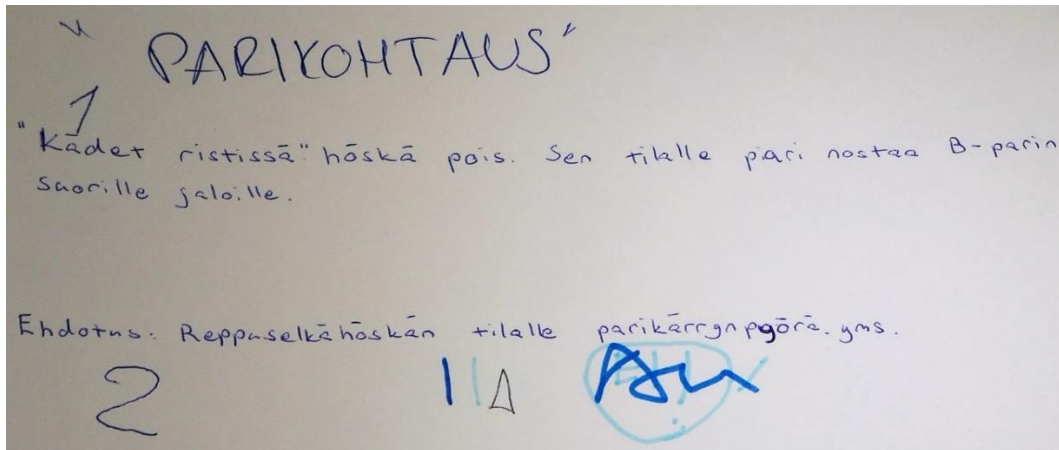 "PARIKOHTAUS"
1
"Kädet ristissä" höskä pois. Sen tilalle pari nostaa B-parin
suorille jaloille.
Ehdotus: Reppuselkähöskän tilalle parikärrynpyörä. yms.
2